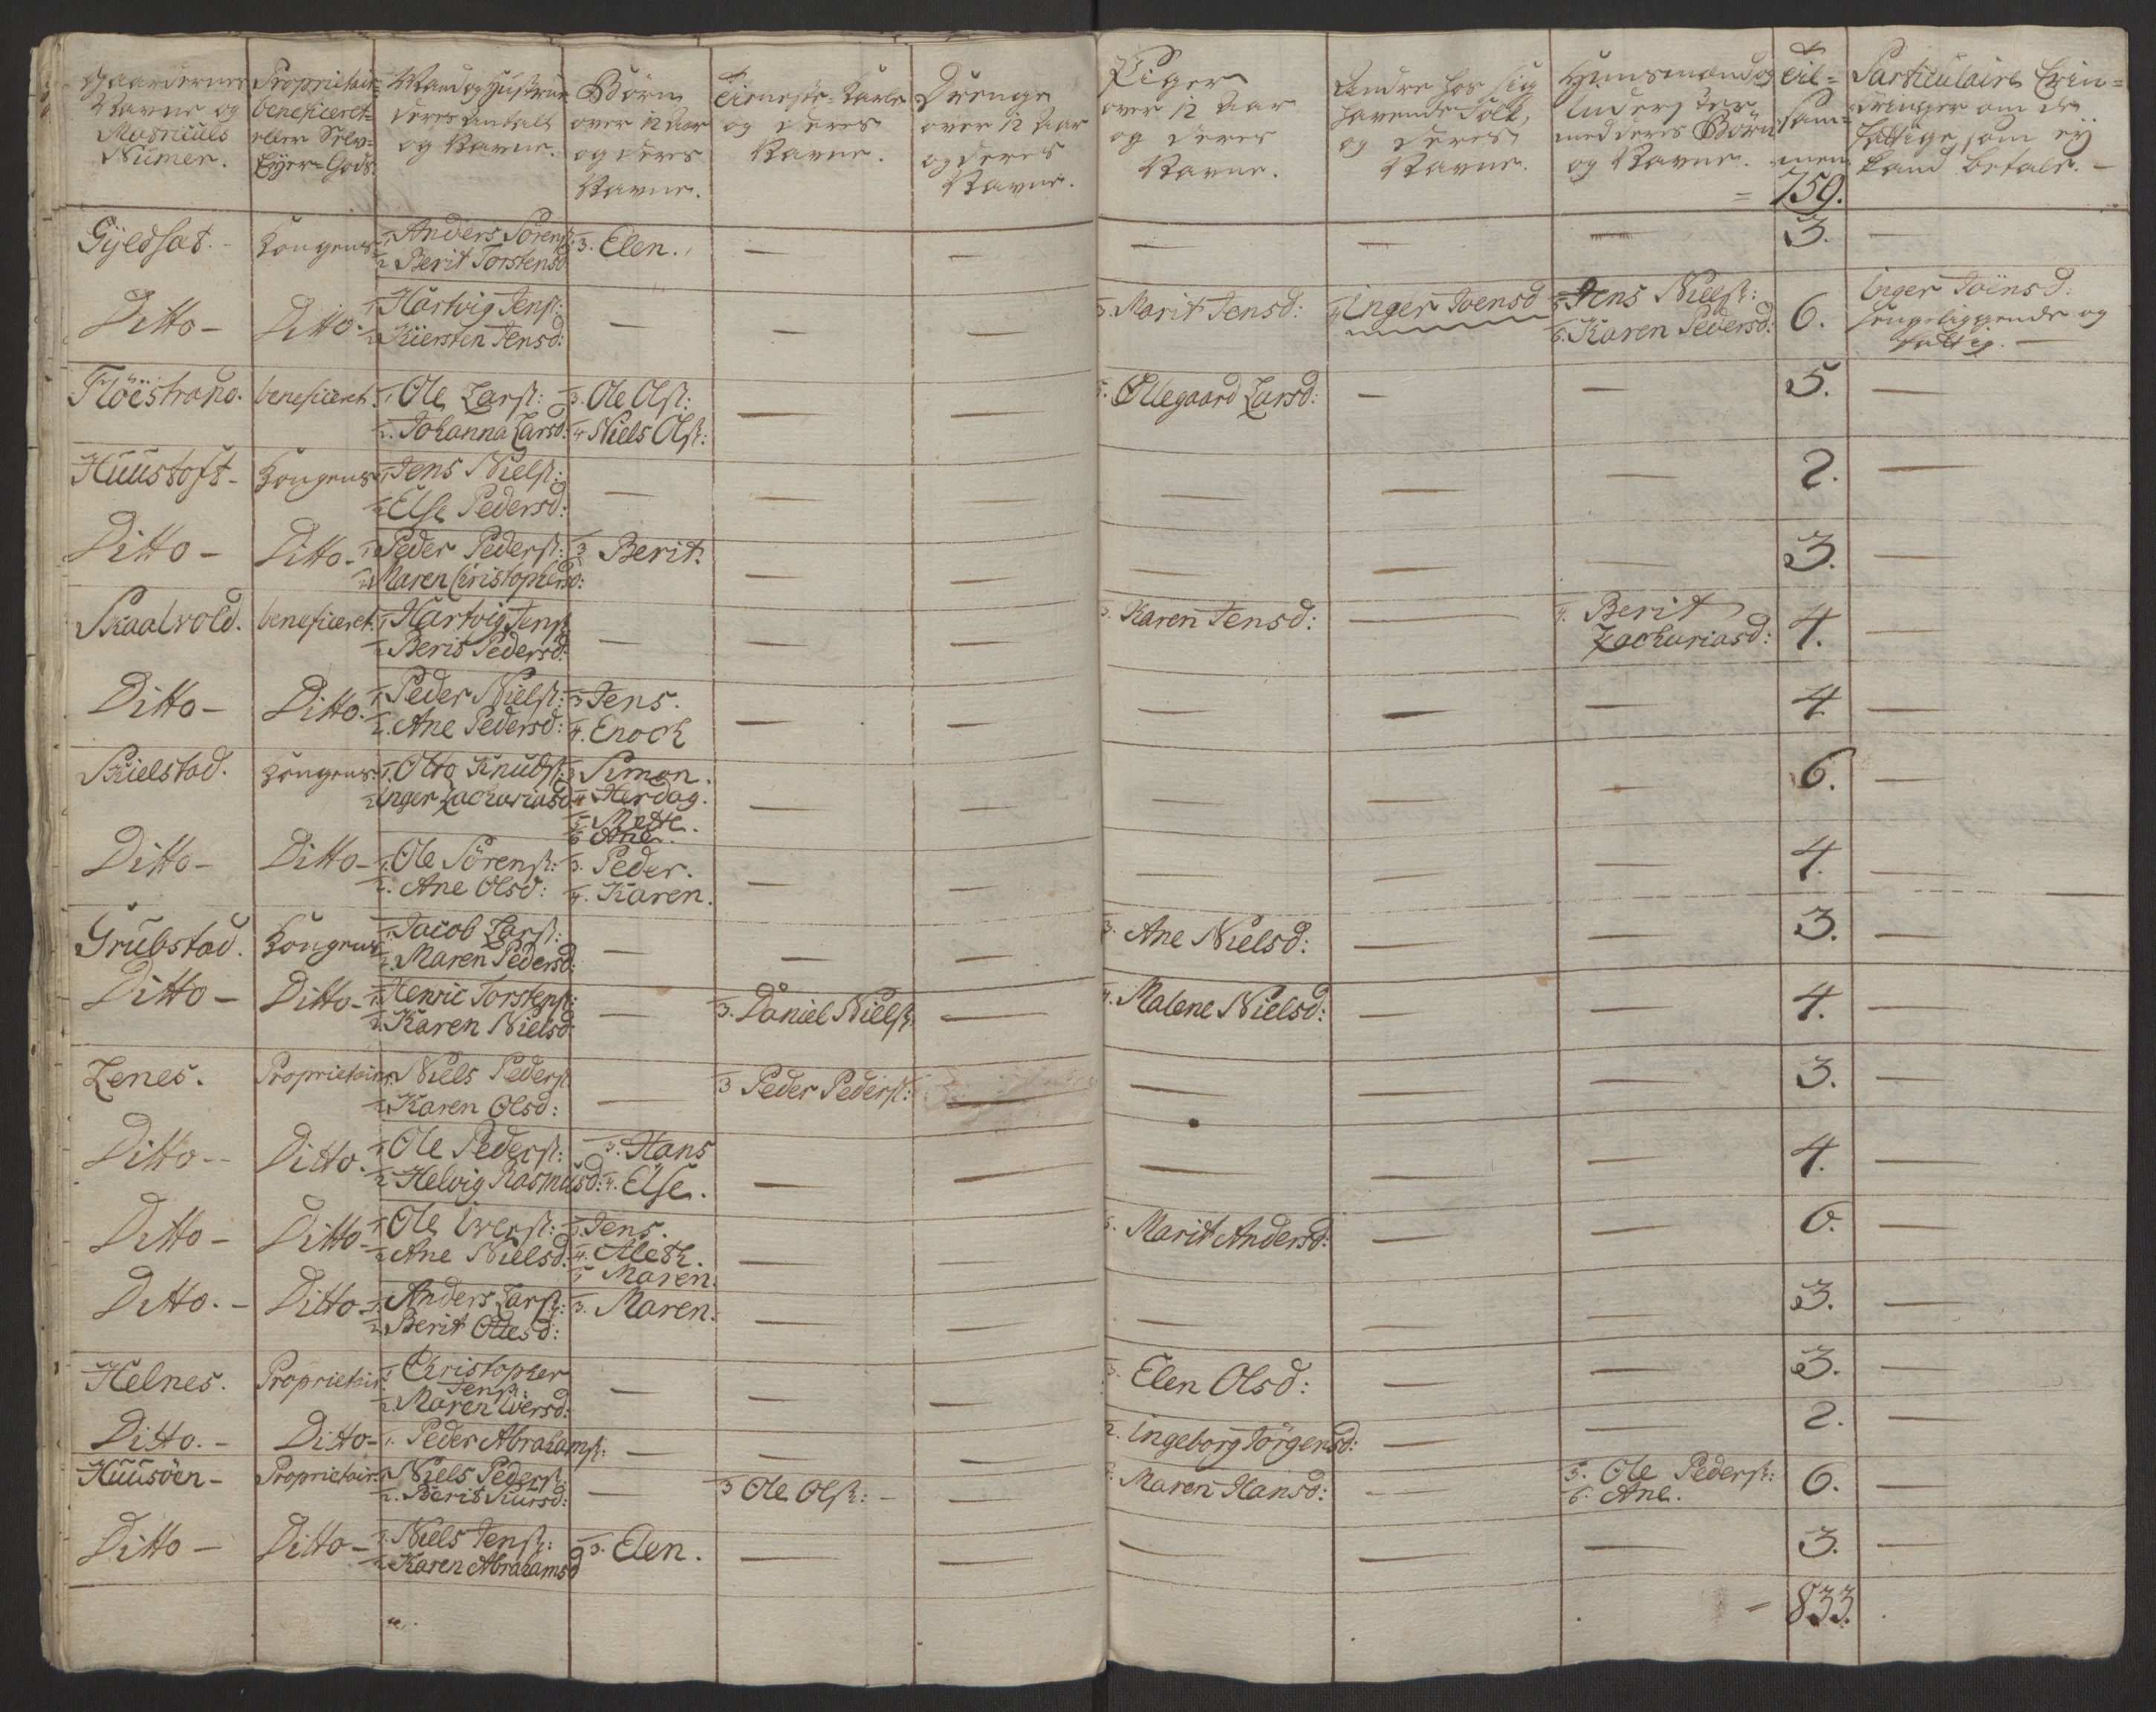 Gaardernes Navne og Matriculs Numer.
Proprietair- beneficeret- eller Selv- Eÿer-Gods.
Mand og Hustrue deres Antall og Navne.
Börn over 12 Aar og deres Navne.
Tieneste-Karle og deres Navne.
Drenge over 12 Aar og deres Navne.
Piger over 12 Aar og deres Navne.
Andre hos sig havende Folk, og deres Navne.
Huusmænd og Inderster med deres Börn og Navne.
Til- sam- men
Particulaire Erin- dringer om de fattige som eÿ kand betale. -
= 759.
Gÿedsat. - Kongens 1. Anders Sörenß: 3. Elen. — — — — — 3. —
2. Berit Torstensd:
Ditto - Ditto. 1. Hartvig Jenß: — — — 3. Marit Jensd: 4. Inger Joensd 5. Jens Nielß: 6. Inger Joënsd:
2. Kiersten Jensd: 6. Karen Pedersd: sengeliggende og
fattig. -
Flöestrand. beneficeret. 1. Ole Larß: 3. Ole Olß: — — 5. Ollegaard Larsd: — — 5. —
2. Johanna Larsd: 4. Niels Olß:
Huustoft - Kongens 1. Jens Nielß: — — — — — — 2. —
2. Else Pedersd:
Ditto - Ditto. 1. Peder Pederß: 3 Berit. — — — — — 3. —
2. Maren Christophersd:
Skaalvold. beneficeret. 1. Hartvig Jenß — — — 3. Karen Jensd: — 4. Berit 4. —
2. Berit Pedersd: Zachariasd:
Ditto - Ditto. 1. Peder Nielß: 3 Jens. — — — — — 4 —
2. Ane Pedersd: 4. Enoch
Skielstad. Kongens. 1. Otto Knudß: 3 Simon. — — — — — 6. —
2 Inger Zachariasd 4 Herdag.
5 Mette.
6 Ane.
Ditto - Ditto - 1. Ole Sörenß: 3. Peder. — — — — — 4. —
2. Ane Olsd: 4. Karen.
Grubstad. Kongens 1. Jacob Larß: — — — 3. Ane Nielsd: — — 3. —
2. Maren Pedersd:
Ditto - Ditto - 1. Henric Torstenß: — 3. Daniel Nielß: — 4. Malene Nielsd: — — 4. —
2. Karen Nielsd
Lenes. Proprietair. 1. Niels Pederß — 3 Peder Pederß: — — — — 3. —
2. Karen Olsd:
Ditto - - Ditto. 1. Ole Pederß: 3. Hans — — — — — 4. —
2 Helvig Rasmusd: 4. Else.
Ditto - Ditto - 1. Ole Iverß: 3. Jens. — — 6. Marit Andersd: — — 6. —
2. Ane Nielsd: 4. Aleth.
5 Maren.
Ditto. - Ditto - 1. Anders Larß: 3. Maren. — — — — — 3. —
2 Berit Olesd:
Helnes. Proprietair. 1. Christopher — — — 3. Elen Olsd: — — 3. —
Jenß:
2. Maren Iversd:
Ditto. - Ditto - 1. Peder Abrahamß: — — — 2. Ingeborg Jörgensd: — — 2. —
Huusöen - Proprietair. 1. Niels Pederß: — 3 Ole Olß: - — Maren Hansd: — 5. Ole Pederß: 6. —
2. Berit 6. Ane.
Ditto - Ditto - 1. Niels Jenß: 3. Elen. — — — — — 3. —
2. Karen Abrahamsd
= 833.